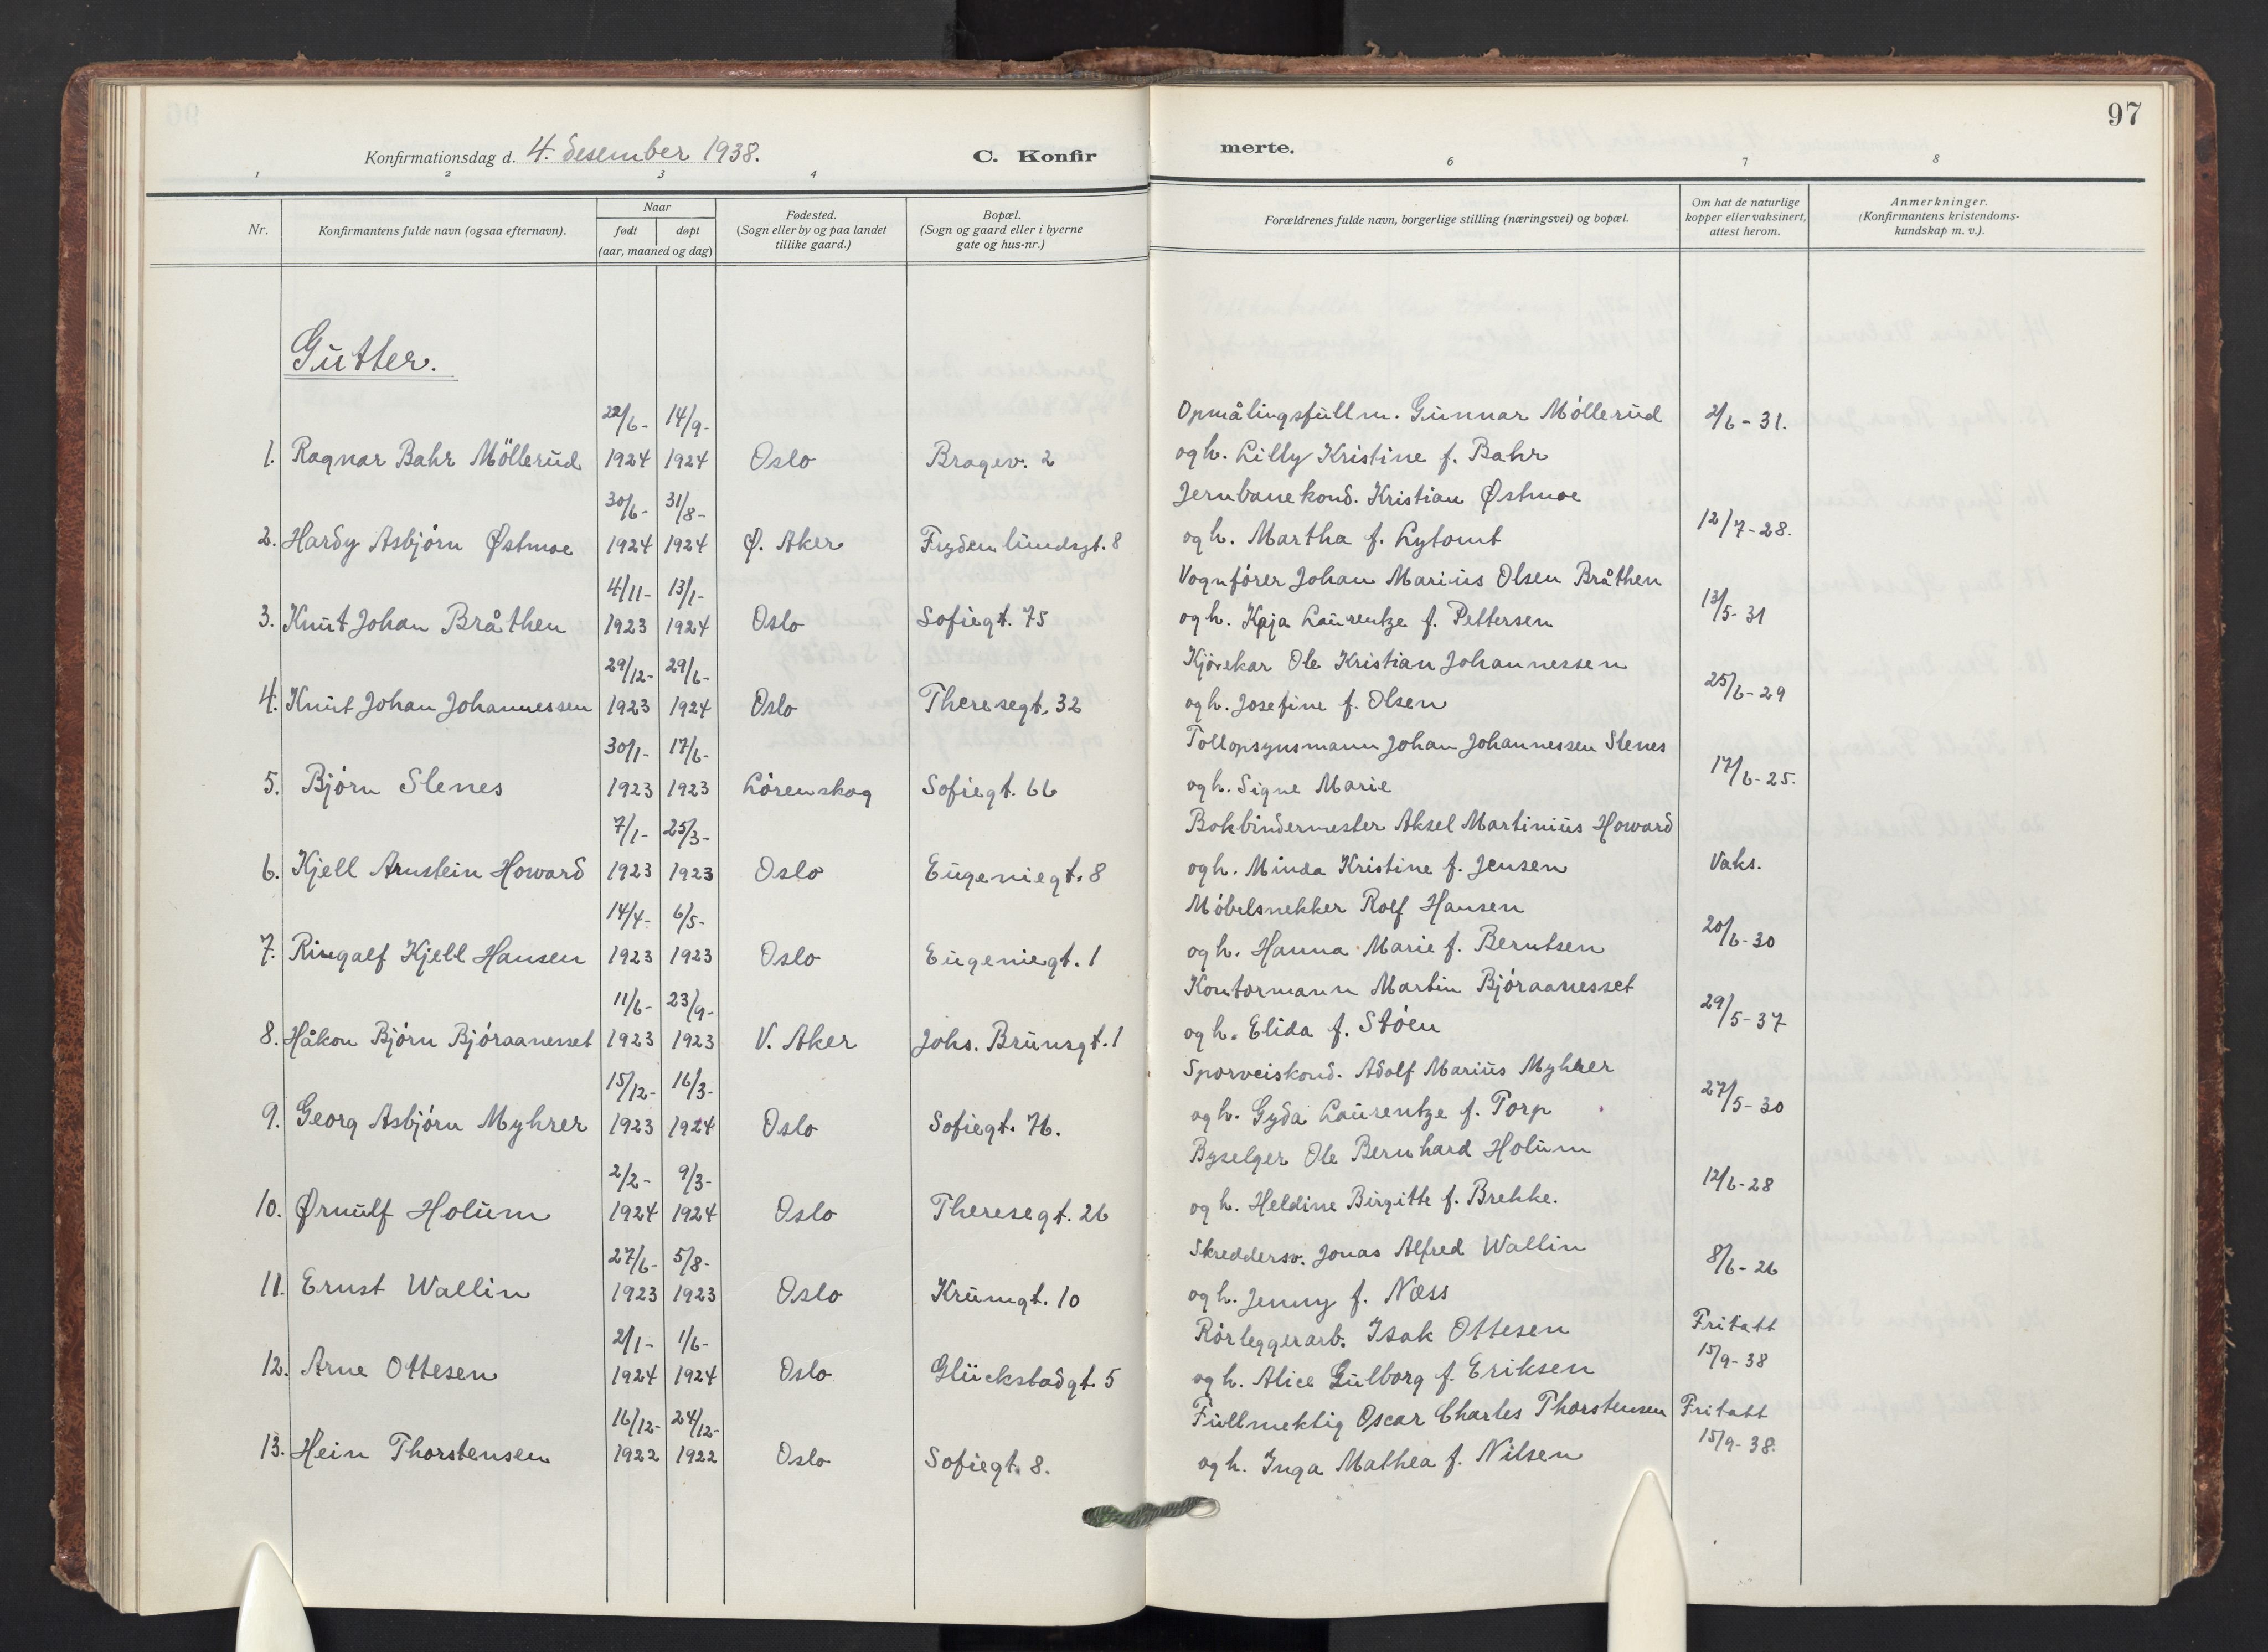 97
Konfirmationsdag d. 4. desember 1938. C. Konfir merte.
1 2 3 4 6 7 8
Nr. Konfirmantens fulde navn (ogsaa efternavn). Naar født døpt (aar, maaned og dag) Fødested. (Sogn eller by og paa landet tillike gaard.) Bopæl. (Sogn og gaard eller i byerne gate og hus-nr.) Forældrenes fulde navn, borgerlige stilling (næringsvei) og bopæl. Om hat de naturlige kopper eller vaksinert, attest herom. Anmerkninger. (Konfirmantens kristendoms-kundskap m. v.).
Gutter.
22/6- 14/9- Opmålingsfullm. Gunnar Möllerud 2/6-31.
1. Ragnar Bahr Möllerud 1924 1924 Oslo Bragev. 2 og h. Lilly Kristine f. Bahr
30/6- 31/8- Jernbanekond. Kristian Østmoe
2. Hardy Asbjörn Østmoe 1924 1924 Ø. Aker Frydenlundsgt. 8 og h. Martha f. Lytomt 12/7-28.
4/11- 13/1- Vognförer Johan Marius Olsen Bråthen
3. Knut Johan Bråthen 1923 1924 Oslo Sofiegt. 75 og h. Kaja Laurentze f. Pettersen 13/5-31
29/12- 29/6- Kjörekar Ole Kristian Johannessen
4. Knut Johan Johannessen 1923 1924 Oslo Theresegt. 32 og h. Josefine f. Olsen 25/6-29
30/1- 17/6- Tollopsynsmann Johan Johannessen Slenes
5. Björn Slenes 1923 1923 Lörenskog Sofiegt. 66 og h. Signe Marie 17/6-25.
7/1- 25/3- Bokbindermester Aksel Martinius Howard
6. Kjell Arnstein Howard 1923 1923 Oslo Eugeniegt. 8 og h. Minda Kristine f. Jensen Vaks.
14/4- 6/5- Möbelsnekker Rolf Hansen
7. Ringalf Kjell Hansen 1923 1923 Oslo Eugeniegt. 1 og h. Hanna Marie f. Berntsen 20/6-30
11/6- 23/9- Kontormann Martin Björaanesset
8. Håkon Björn Björaanesset 1923 1923 V. Aker Johs. Brunsgt. 1 og h. Elida f. Stöen 29/5-37
15/12- 16/3- Sporveiskond. Adolf Marius Myhrer
9. Georg Asbjörn Myhrer 1923 1924 Oslo Sofiegt. 76. og h. Gyda Laurentze f. Torp 27/5-30
2/2- 9/3- Byselger Ole Bernhard Holum
10. Ørnulf Holum 1924 1924 Oslo Theresegt. 26 og h. Heldine Birgitte f. Brekke. 12/6-28
27/6- 5/8- Skreddersv. Jonas Alfred Wallin
11. Ernst Wallin 1923 1923 Oslo Krumgt. 10 og h. Jenny f. Næss 8/6-26
2/1- 1/6- Rörleggerarb. Isak Ottesen Fritatt
12. Arne Ottesen 1924 1924 Oslo Glückstadgt. 5 og h. Alice Gulborg f. Eriksen 15/9-38
16/12- 24/12- Fullmektig Oscar Charles Thorstensen Fritatt
13. Hein Thorstensen 1922 1922 Oslo Sofiegt. 8. og h. Inga Mathea f. Nilsen 15/9-38.